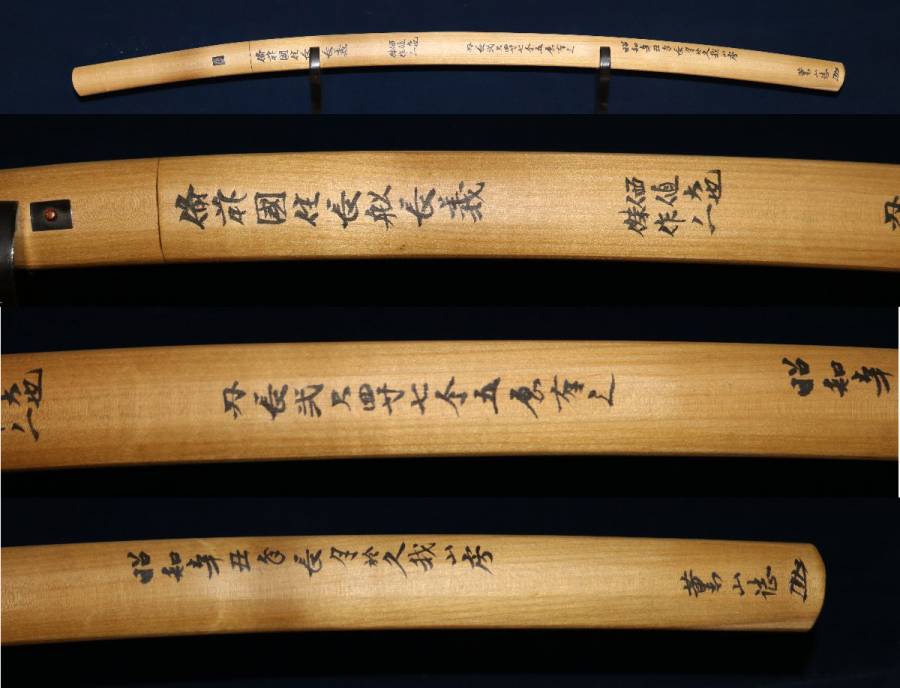 備前國住長船長義
傑作
価値大也
刃長弐尺四寸七分五厘有之
昭和辛丑年長月於久我山房
薫山誌